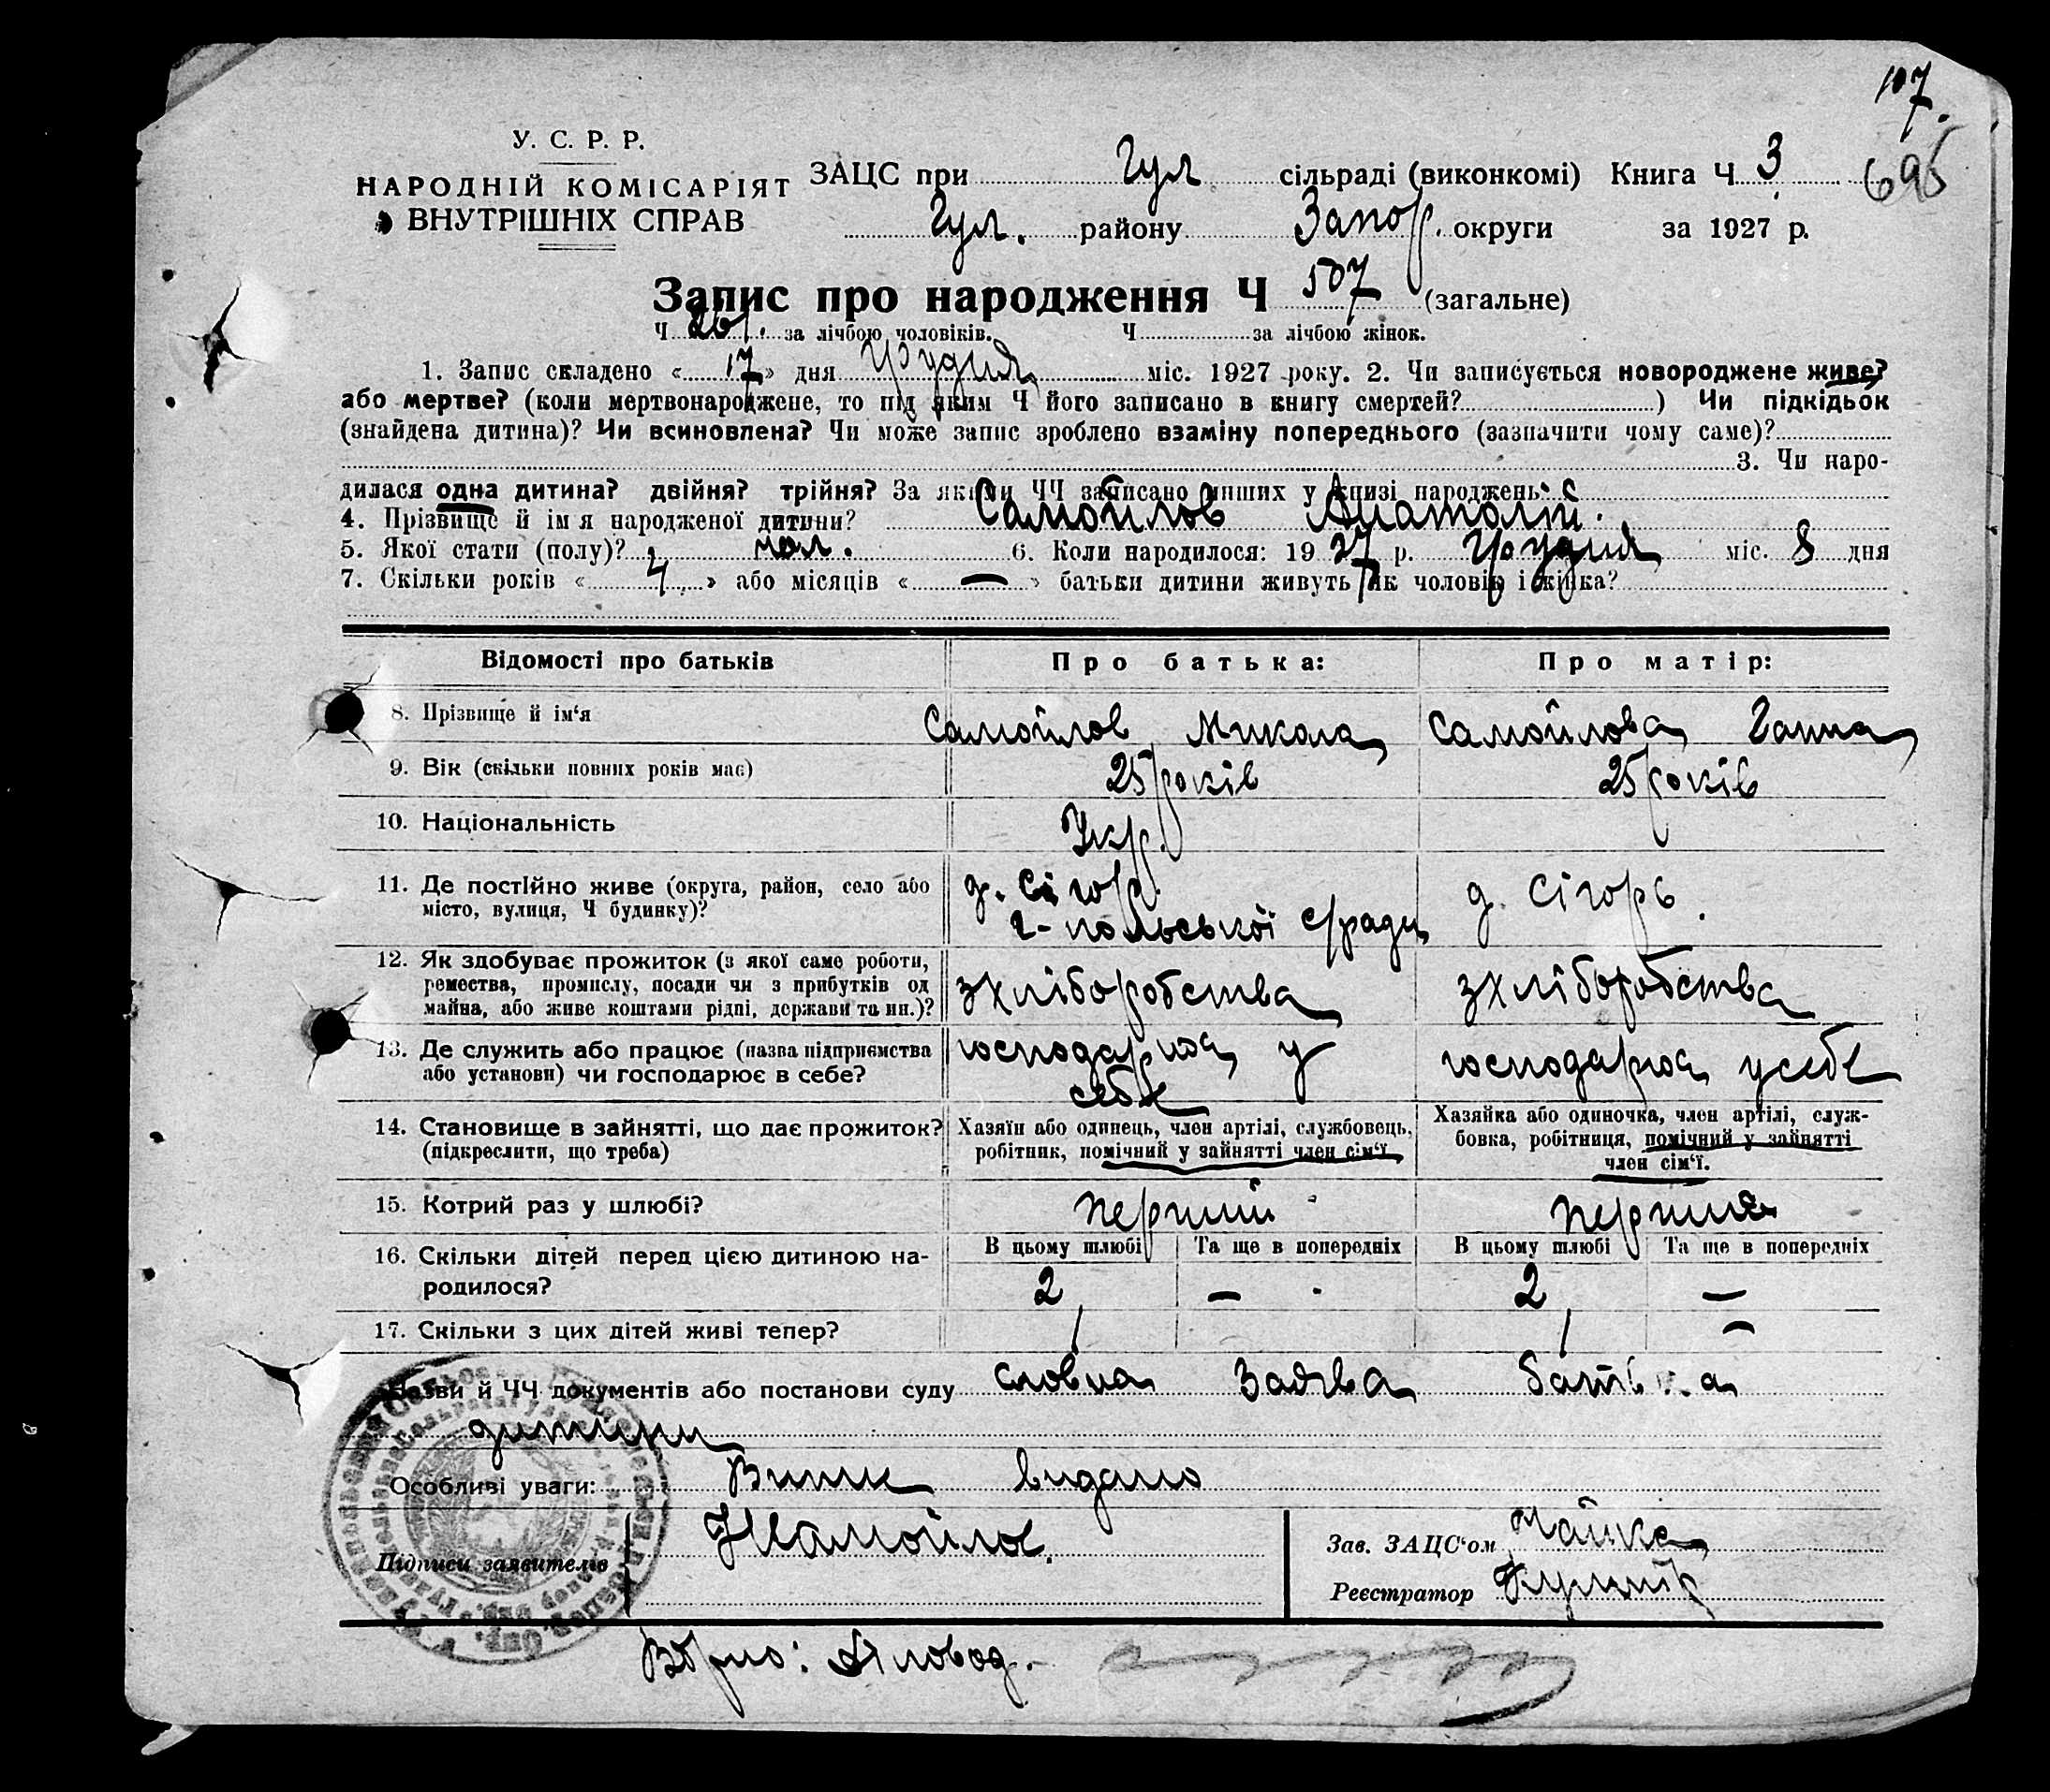 107.
У. С. Р. Р.
НАРОДНІЙ КОМІСАРІЯТ
ВНУТРІШНІХ СПРАВ
ЗАЦС при Гул сільраді (виконкомі) Книга Ч 3 695
Гул. району Запор. округи за 1927 р.
Запис про народження Ч 507 (загальне)
Ч 261. за лічбою чоловіків. Ч за лічбою жінок.
1. Запис складено « 17 » дня Грудня міс. 1927 року. 2. Чи записується новороджене живе?
або мертве? (коли мертвонароджене, то під яким Ч його записано в книгу смертей? ) Чи підкідьок
(знайдена дитина)? Чи всиновлена? Чи може запис зроблено взаміну попереднього (зазначити чому саме)?
3. Чи наро-
дилася одна дитина? двійня? трійня? За якими ЧЧ записано инших у книзі народжень:
4. Прізвище й ім я народженої дитини? Самойлов Анатолій.
5. Якої стати (полу)? чол. 6. Коли народилося: 19 27 р. Грудня міс. 8 дня
7. Скільки років « 4 » або місяців « — » батьки дитини живуть як чоловік і жінка?
Відомості про батьків Про батька: Про матір:
8. Прізвище й ім‘я Самойлов Микола Самойлова Ганна
9. Вік (скільки повних років має) 25 років 25 років
10. Національність Укр.
11. Де постійно живе (округа, район, село або
місто, вулиця, Ч будинку)?
д. Сігор.
г-польської с/ради
д. Сігорь.
12. Як здобуває прожиток (з якої саме роботи,
ремества, промислу, посади чи з прибутків од
майна, або живе коштами рідні, держави та ин.)?
з хліборобства з хліборобства
13. Де служить або працює (назва підприємства
або установи) чи господарює в себе?
господарює у
себе
господарює у себе
14. Становище в зайнятті, що дає прожиток?
(підкреслити, що треба)
Хазяїн або одинець, член артілі, службовець,
робітник, помічний у зайнятті член сім‘ї
Хазяйка або одиночка, член артілі, служ-
бовка, робітниця, помічний у зайнятті
член сім‘ї.
15. Котрий раз у шлюбі? перший перший
16. Скільки дітей перед цією дитиною на-
родилося?
В цьому шлюбі Та ще в попередніх В цьому шлюбі Та ще в попередніх
2 — 2 —
17. Скільки з цих дітей живі тепер? 1 1 —
Назви й ЧЧ документів або постанови суду словна Заява батька
дитини
Особливі уваги: Випис видано
Підписи заявителів Самойлов.
Зав. ЗАЦС‘ом
Реєстратор
Вірно: Діловод.